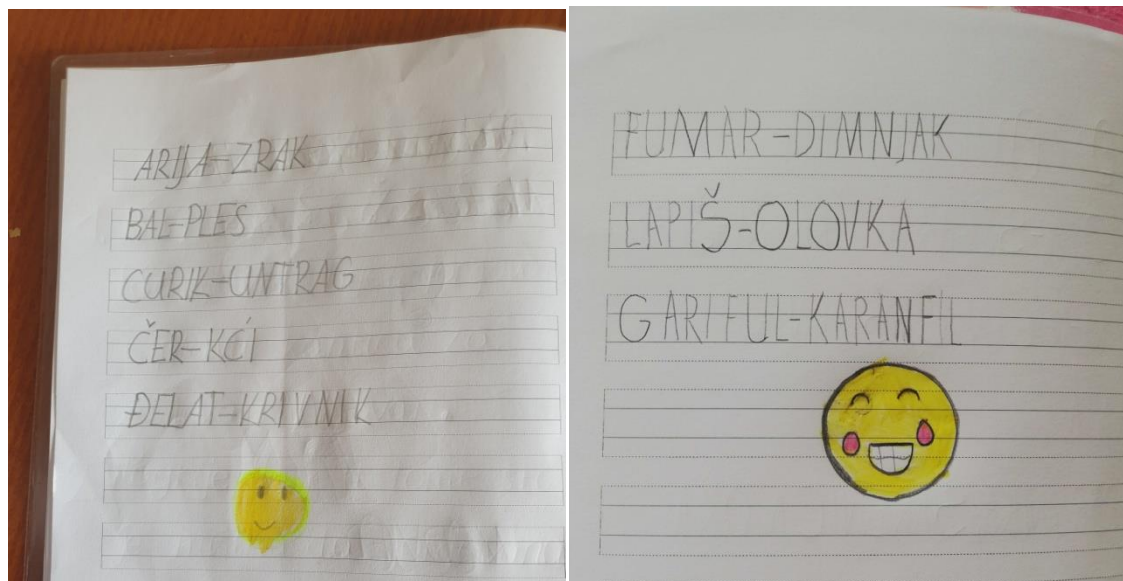 ARIJA-ZRAK
BAL-PLES
CURIK-UNTRAG
ČER-KĆI
ĐELAT-KRIVNIK
FUMAR-DIMNJAK
LAPIŠ-OLOVKA
GARIFUL-KARANFIL